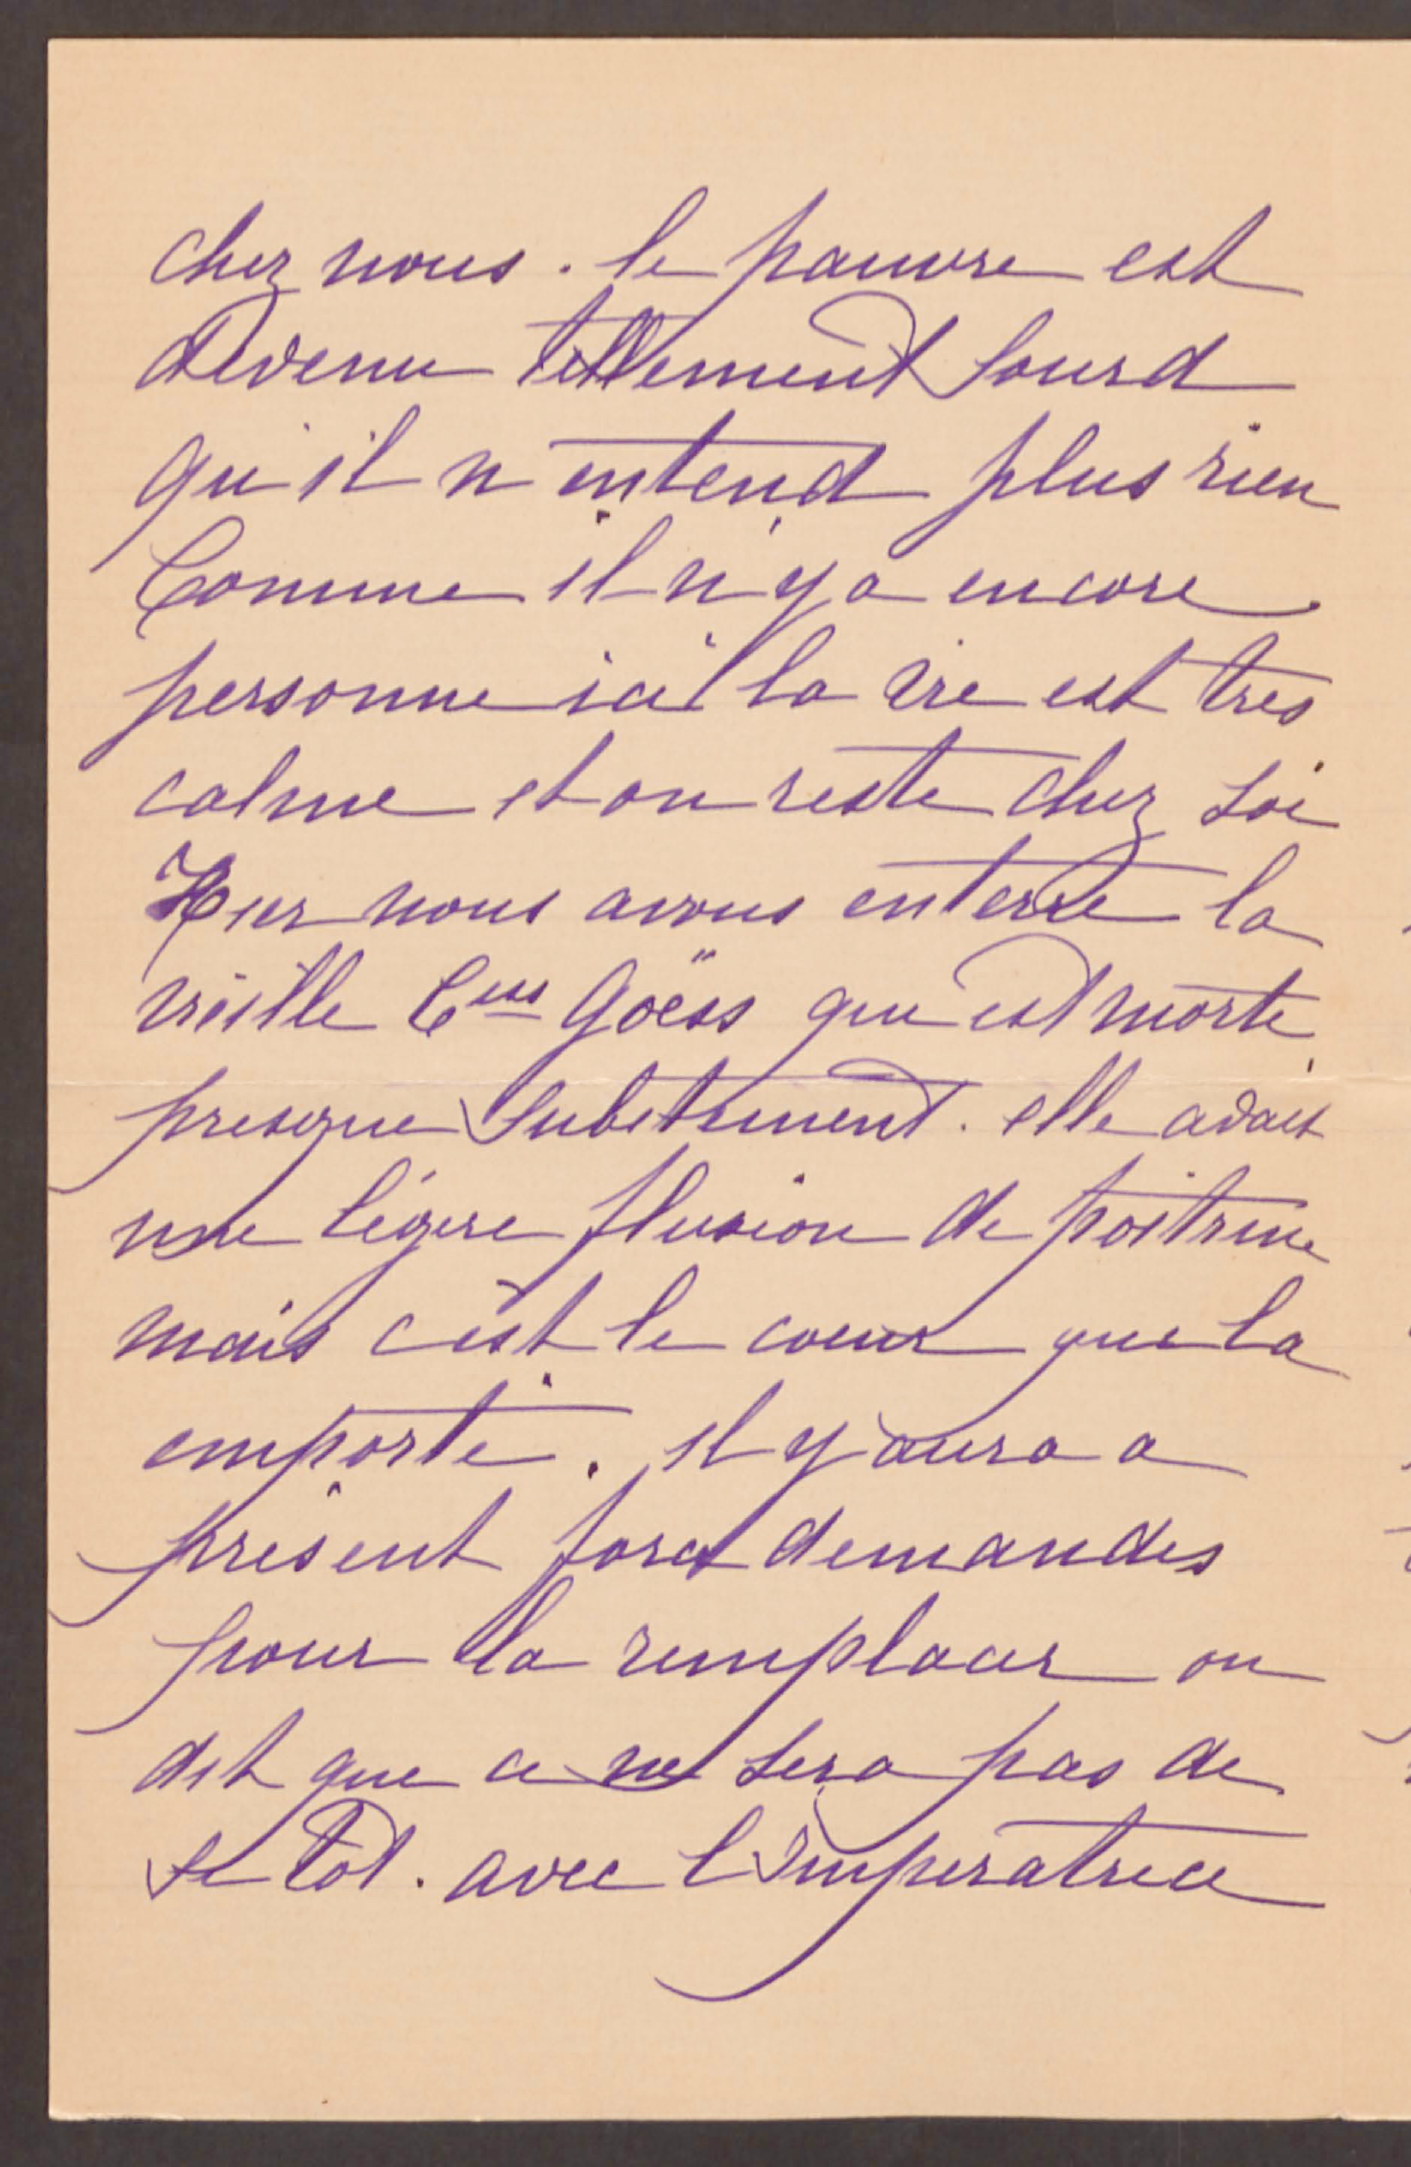 chez nous. le pauvre est
devenu tellement sourd
qu'il n'entend plus rien
Comme il n'y a encore
personne ici la vie est tres
calme et on reste chez soi
Hier nous avons enterré la
vieille C<sup>sse</sup> Goëss qui est morte
presque subitement. elle avait
une légere fluxion de poitrine
mais c'est le coeur qui la
emporté. il y aura a
présent force demandes
pour la remplacer on
dit que ce ne sera pas de
si tôt. avec l'Imperatrice